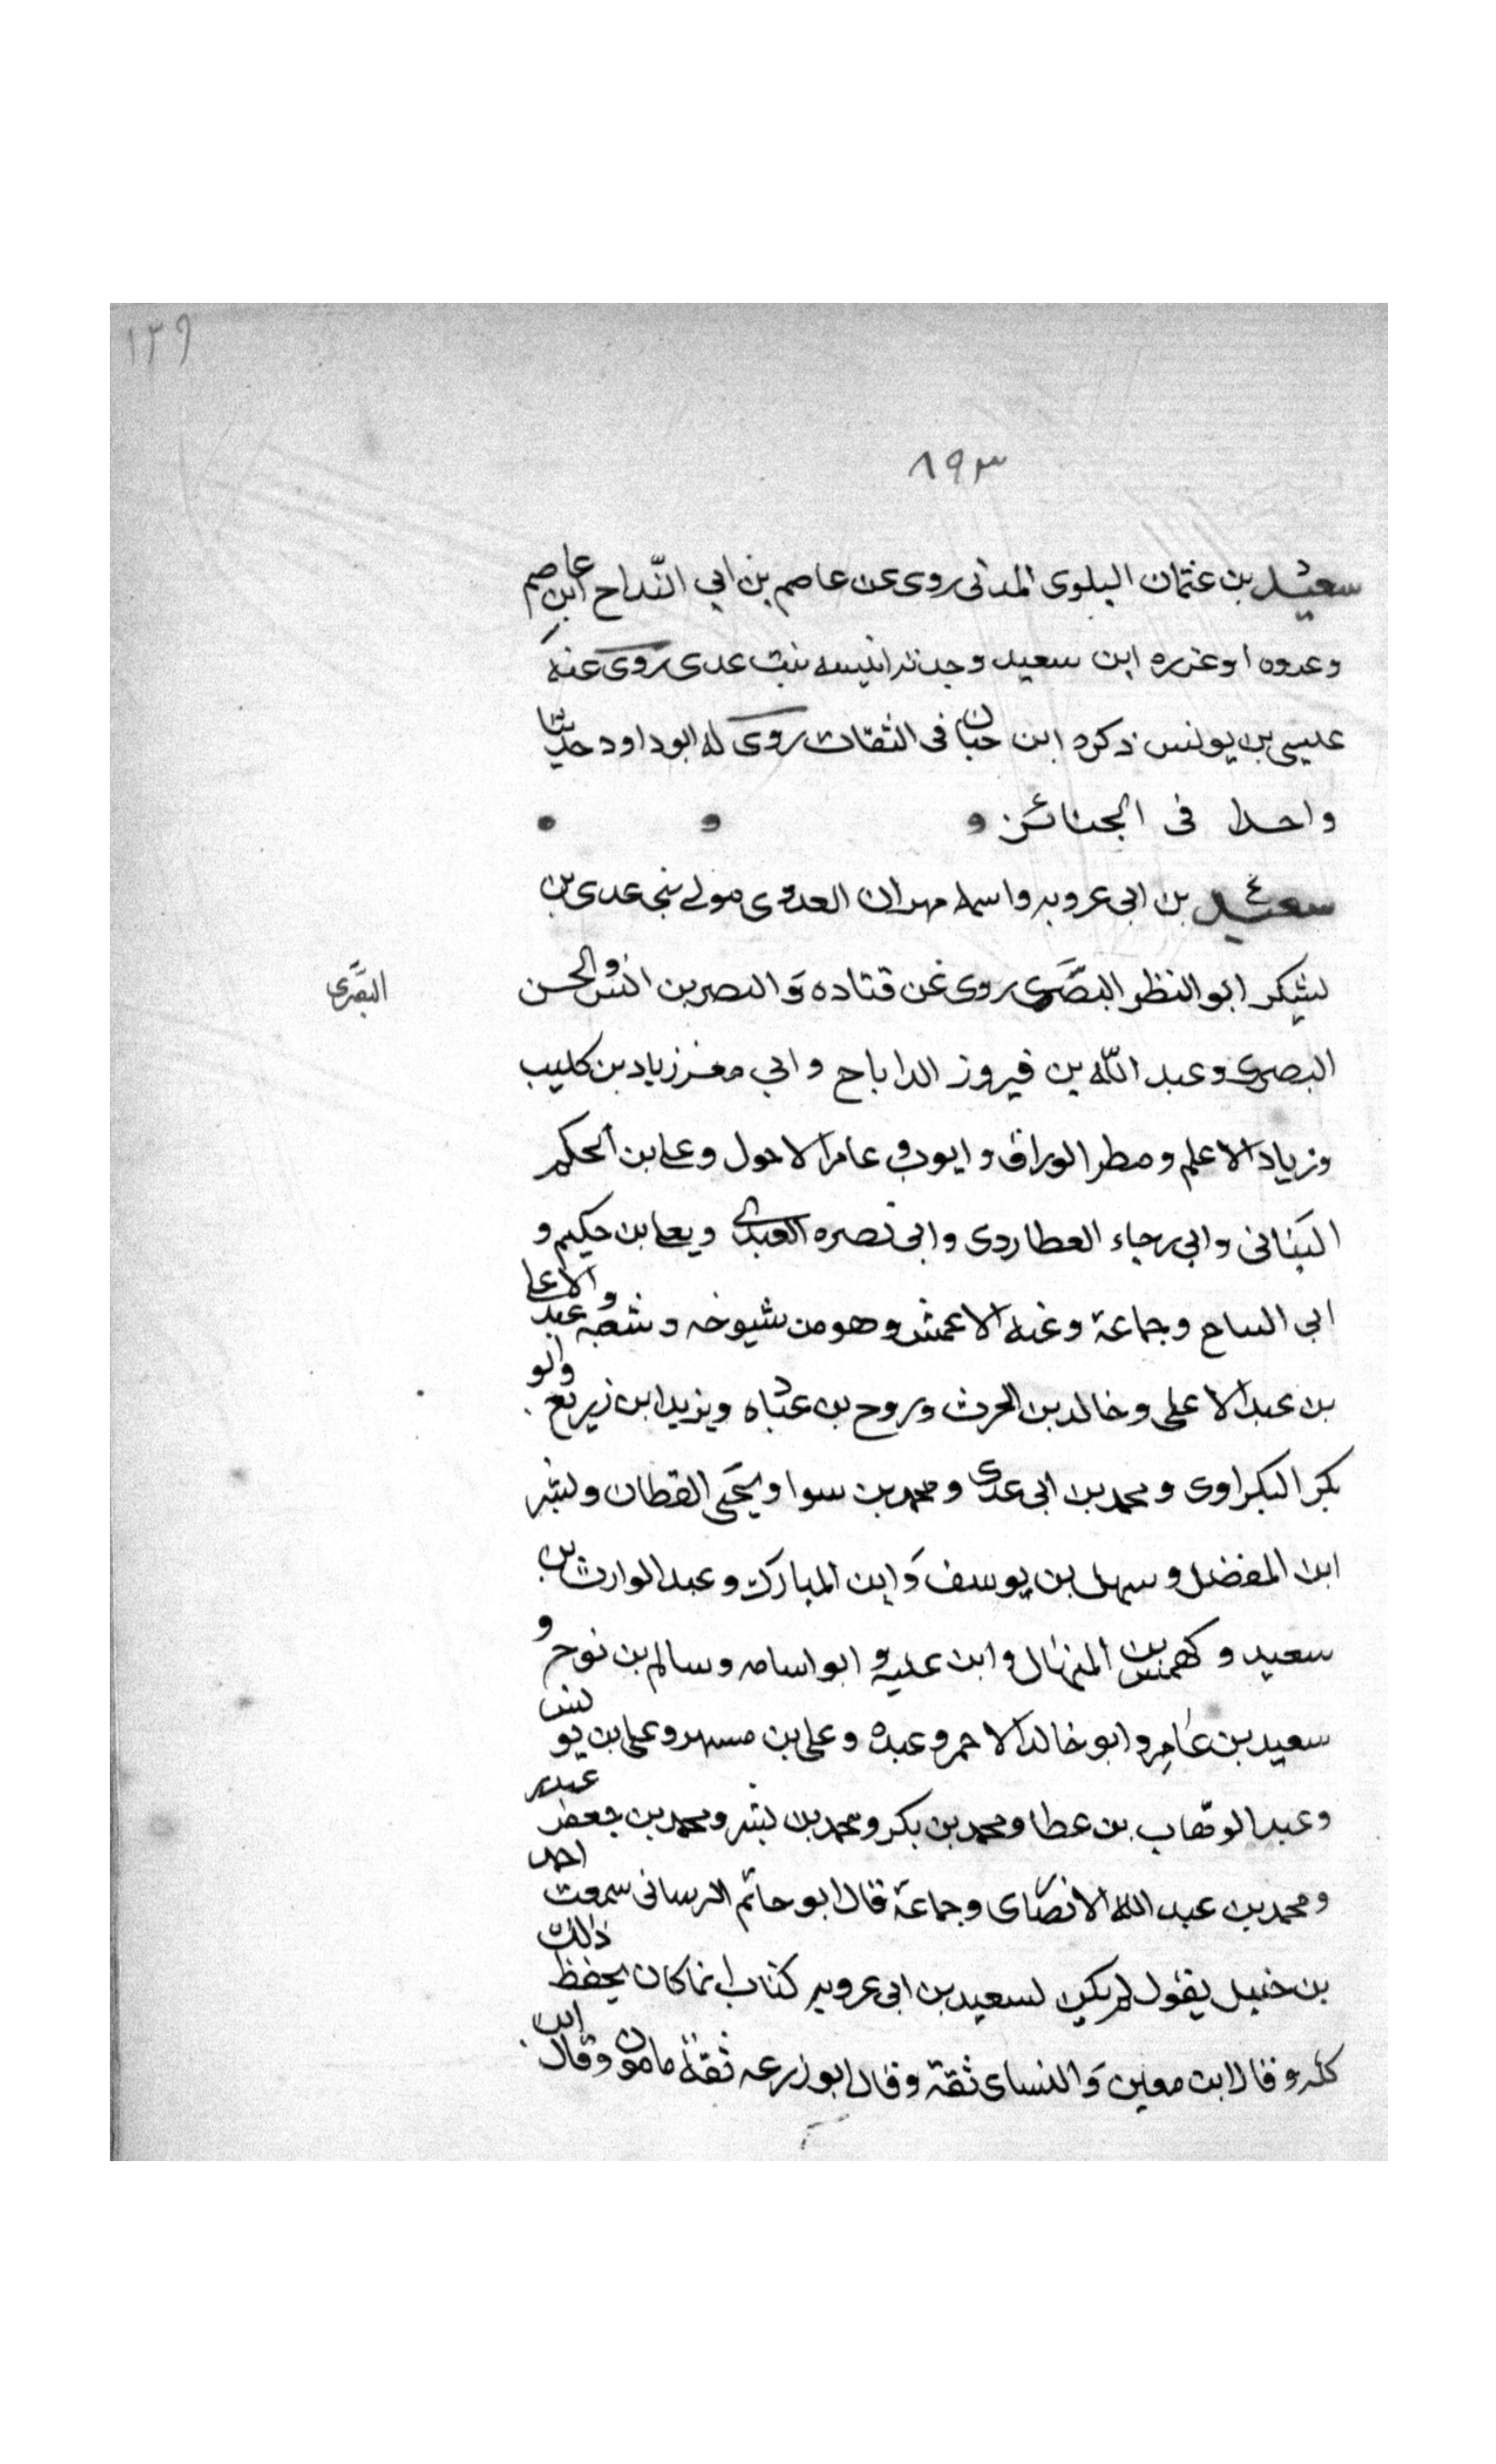 ١٣٩
٨٩٣
سعيد بن عثمان البلوى المدنى روى عن عاصم بن ابي البداح ابن عاصم
وعروه او عزره ابن سعيد وجدته انيسه بنت عدى روى عنه
عيسى بن يونس ذكره ابن حبان فى الثقات روى له ابو داود حديثا
واحدا فى الجنائز
سعيد بن ابى عروبه واسمه مهران العدوى مولى بنى عدى بن
يشكر ابو النظر البصرى روى عن قتاده والنصر بن انس والحسن
البصرى
البصرى وعبد الله بن فيروز الداناج وابي معشر زياد بن كليب
وزياد الاعلم ومطر الوراق وايوب و عامر الاحول وعلى بن الحكم
البنانى وابي رجاء العطاردى وابى نصره العبدى ويعلى بن حكيم و
ابى التياح وجماعة وعنه الاعمش وهو من شيوخه وشعبه وعبد الاعلى
بن عبد الاعلى وخالد بن الحرث وروح بن عباده ويزيد ابن زريع وابو
بكر البكراوى ومحمد بن ابى عدى ومحمد بن سوا ويحيى القطان وبشر
ابن المفضل وسهل بن يوسف وابن المبارك وعبد الوارث بن
سعيد وكهمس بن المنهال وابن عليه و ابو اسامه وسالم بن نوح و
سعيد بن عامر وابو خالد الاحمر وعبده وعلى بن مسهر وعلى بن يونس
وعبد الوهاب بن عطا ومحمد بن بكر ومحمد بن بشر ومحمد بن جعفر غندر
ومحمد بن عبد الله الانصاى وجماعة قال ابو حاتم سمعت احمد
بن حنبل يقول لم يكن لسعيد بن ابى عروبه كتاب انما كان يحفظ ذلك
كله وقال ابن معين والنساى ثقة وقال ابو زرعه ثقة مامون وقال ابن